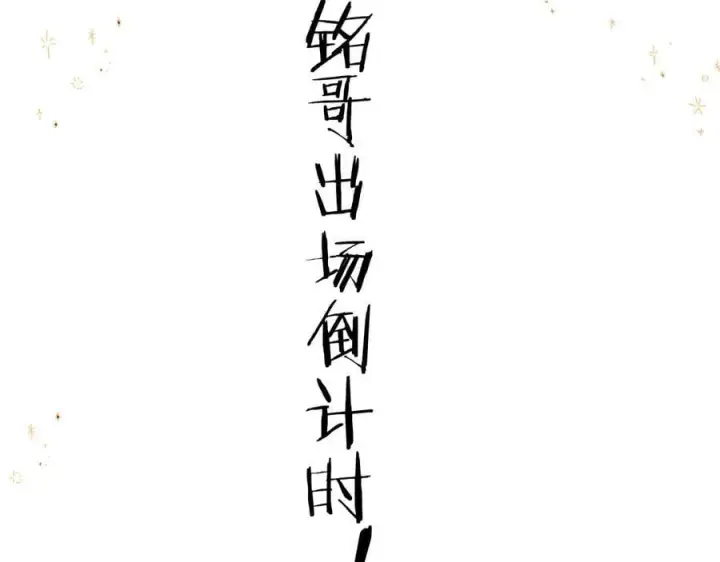 铭哥出场倒计时！